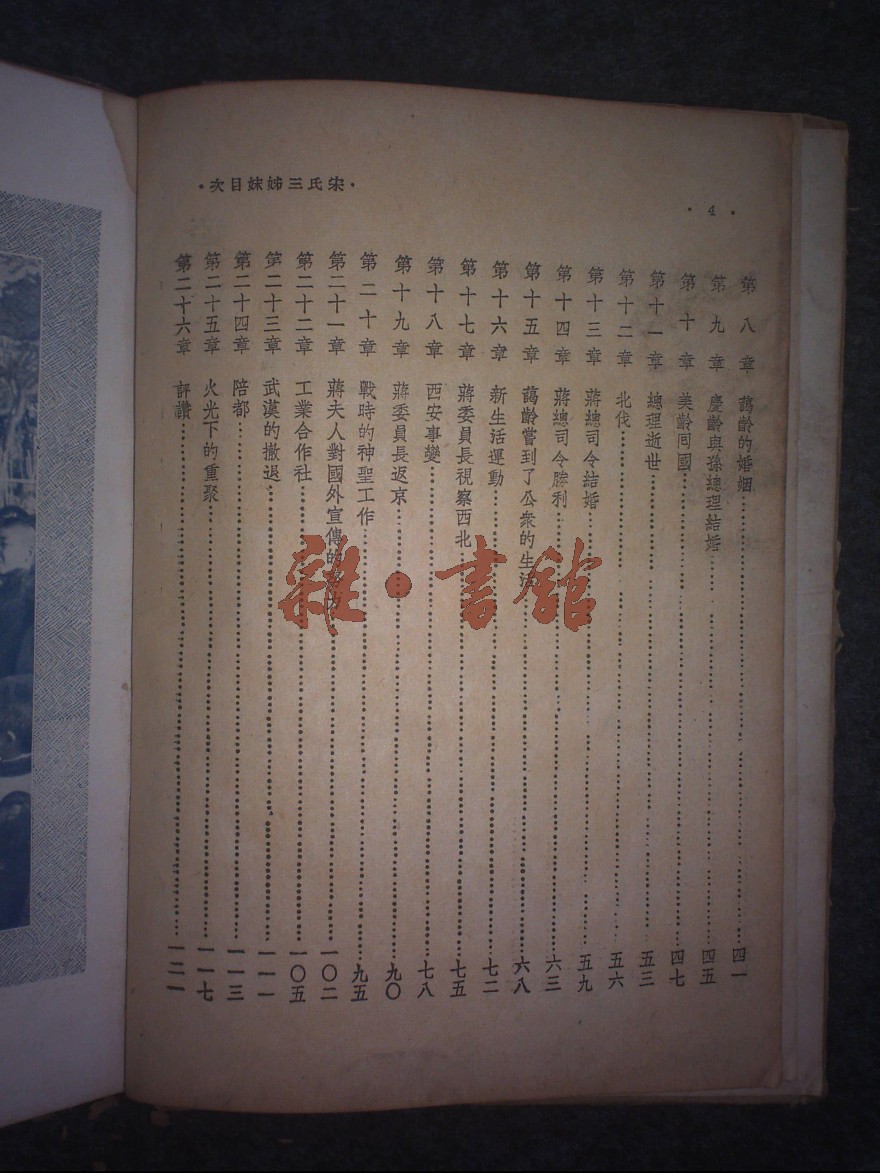 ·宋氏三姊妹目次·
· 4 ·
第八章 藹齡的婚姻 四一
第九章 慶齡與孫總理結婚 四五
第十章 美齡囘國 四七
第十一章 總理逝世 五三
第十二章 北伐 五六
第十三章 蔣總司令結婚 五九
第十四章 蔣總司令勝利 六三
第十五章 藹齡嘗到了公衆的生活 六八
第十六章 新生活運動 七二
第十七章 蔣委員長視察西北 七五
第十八章 西安事變 七八
第十九章 蔣委員長返京 九〇
第二十章 戰時的神聖工作 九五
第二十一章 蔣夫人對國外宣傳的 一〇二
第二十二章 工業合作社 一〇五
第二十三章 武漢的撤退 一一一
第二十四章 陪都 一一三
第二十五章 火光下的重聚 一一七
第二十六章 評讚 一二一
雜·書館